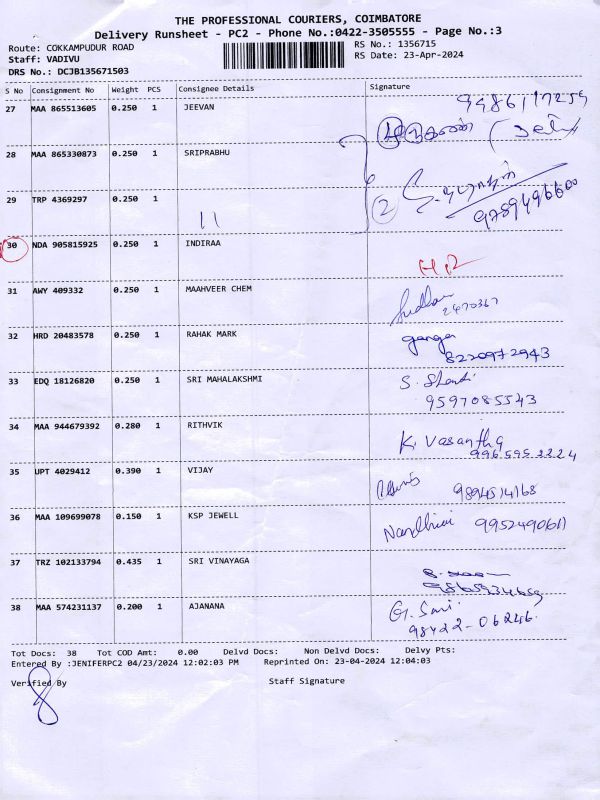 THE PROFESSIONAL COURIERS, COIMBATORE
Delivery Runsheet - PC2 - Phone No.:0422-3505555 - Page No.:3
Route: COKKAMPUDUR ROAD RS No.: 1356715
Staff: VADIVU RS Date: 23-Apr-2024
DRS No.: DCJB135671503
S No Consignment No Weight PCS Consignee Details Signature
27 MAA 865513605 0.250 1 JEEVAN
28 MAA 865330873 0.250 1 SRIPRABHU
29 TRP 4369297 0.250 1 11 2 9789496600
30 NDA 905815925 0.250 1 INDIRAA
31 AWY 409332 0.250 1 MAAHVEER CHEM 2470367
32 HRD 20483578 0.250 1 RAHAK MARK ganga
8220972943
33 EDQ 18126820 0.250 1 SRI MAHALAKSHMI S. Shanti
9597085543
34 MAA 944679392 0.280 1 RITHVIK K. Vasantha
35 UPT 4029412 0.390 1 VIJAY 9894514168
36 MAA 109699078 0.150 1 KSP JEWELL Nandhini
37 TRZ 102133794 0.435 1 SRI VINAYAGA
38 MAA 574231137 0.200 1 AJANANA G. Sari
98422-06246.
Tot Docs: 38 Tot COD Amt: 0.00 Delvd Docs: Non Delvd Docs: Delvy Pts:
Entered By :JENIFERPC2 04/23/2024 12:02:03 PM Reprinted On: 23-04-2024 12:04:03
Verified By Staff Signature